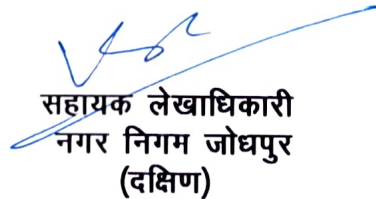 सहायक लेखाधिकारी
नगर निगम जोधपुर
(दक्षिण)